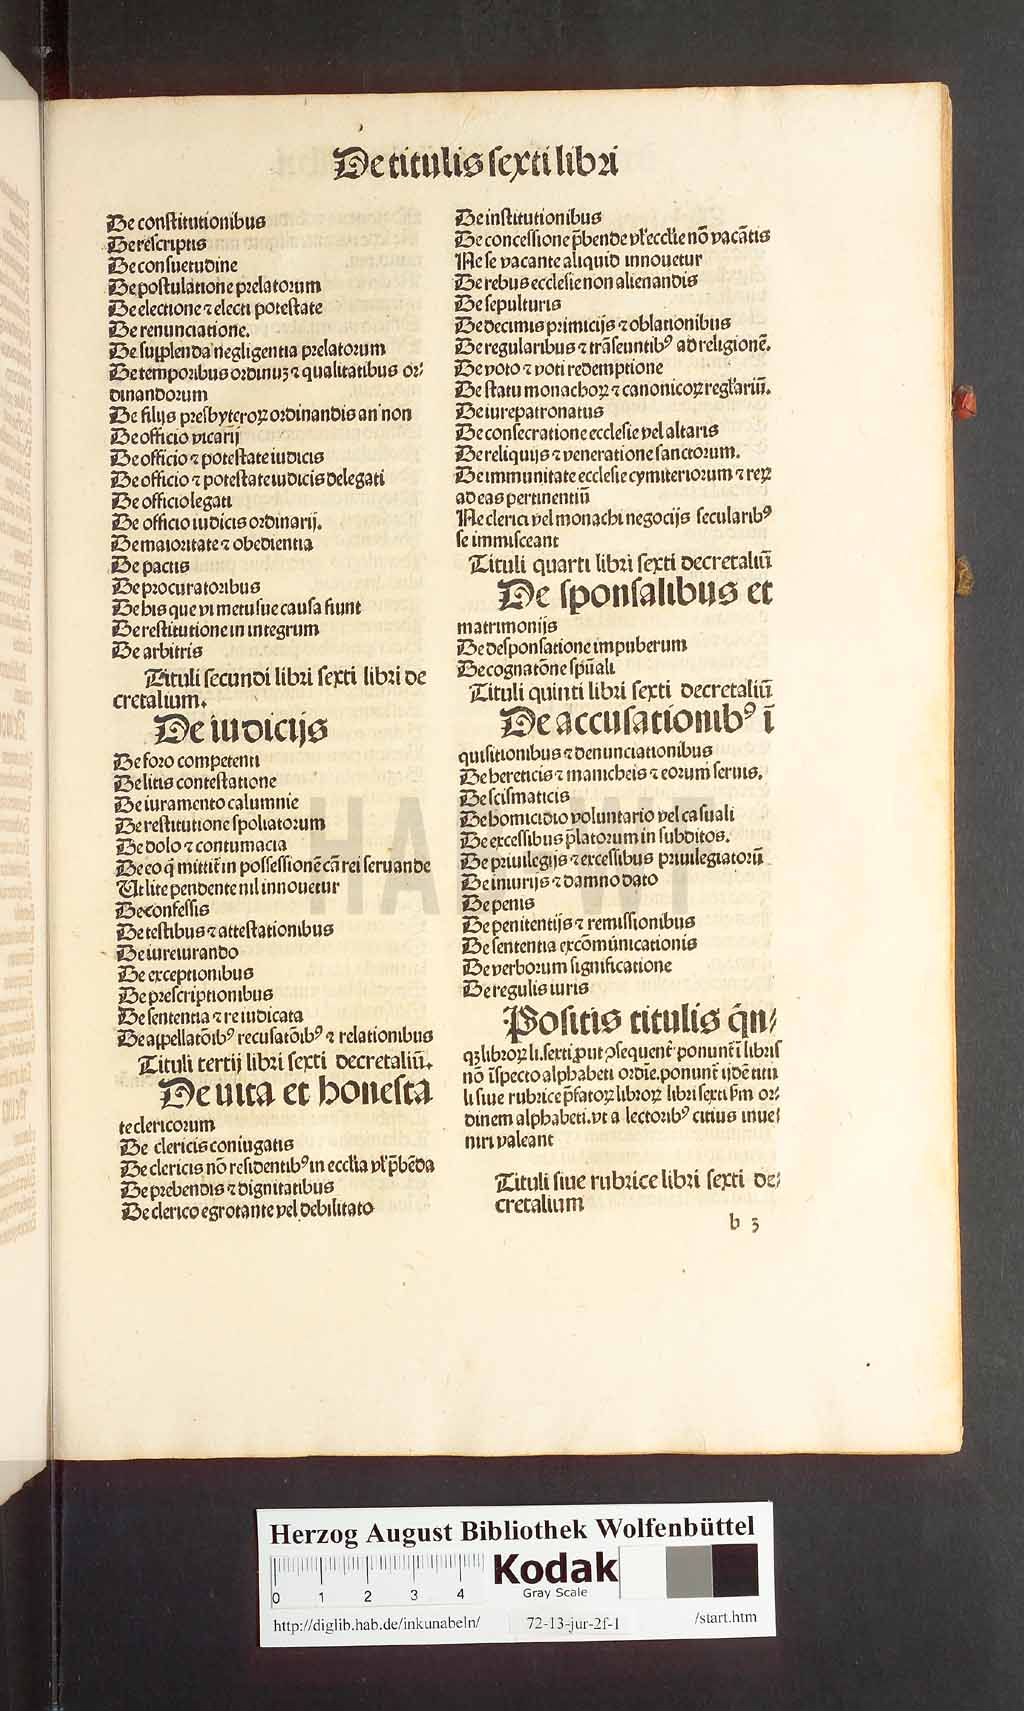 De titulis sexti libri
De constitutionibus
De rescriptis
De consuetudine
De postulatione prelatorum
De electione ⁊ electi potestate
De renunciatione.
De supplenda negligentia prelatorum
De temporibus ordinuꝫ ⁊ qualitatibus or⸗
dinandorum
De filijs presbyteroꝝ ordinandis an non
De officio vicarij
De officio ⁊ potestate iudicis
De officio ⁊ potestate iudicis delegati
De officio legati
De officio iudicis ordinarij.
De maioritate ⁊ obedientia
De pactis
De procuratoribus
De his que vi metusue causa fiunt
De restitutione in integrum
De arbitris
Tituli secundi libri sexti libri de
cretalium.
De iudicijs
De foro competenti
De litis contestatione
De iuramento calumnie
De restitutione spoliatorum
De dolo ⁊ contumacia
De eo q̄ mittit̄ in possessionē cā rei seruande
Ut lite pendente nil innouetur
De confessis
De testibus ⁊ attestationibus
De iureiurando
De exceptionibus
De prescriptionibus
De sententia ⁊ re iudicata
De appellatōibꝰ recusatōibꝰ ⁊ relationibus
Tituli tertij libri sexti decretaliū.
De uita et honesta
te clericorum
De clericis coniugatis
De clericis nō residentibꝰ in ecclīa vl̓ p̄bēda
De prebendis ⁊ dignitatibus
De clerico egrotante vel debilitato
De institutionibus
De concessione p̄bende vl̓ ecclīe nō vacātis
Ne se vacante aliquid innouetur
De rebus ecclesie non alienandis
De sepulturis
De decimis primicijs ⁊ oblationibus
De regularibus ⁊ trāseuntibꝰ ad religionē.
De voto ⁊ voti redemptione
De statu monachoꝝ ⁊ canonicoꝝ regl̓ariū.
De iurepatronatus
De consecratione ecclesie vel altaris
De reliquijs ⁊ veneratione sanctorum.
De immunitate ecclesie cymiteriorum ⁊ reꝝ
ad eas pertinentiū
Ne clerici vel monachi negocijs secularibꝰ
se immisceant
Tituli quarti libri sexti decretaliū
De sponsalibus et
matrimonijs
De desponsatione impuberum
De cognatōne spūali
Tituli quinti libri sexti decretaliū
De accusationibꝰ ī
quisitionibus ⁊ denunciationibus
De hereticis ⁊ manicheis ⁊ eorum seruis.
De scismaticis
De homicidio voluntario vel casuali
De excessibus p̄latorum in subditos.
De priuilegijs ⁊ excessibus priuilegiatorū
De iniurijs ⁊ damno dato
De penis
De penitentijs ⁊ remissionibus
De sententia excōmunicationis
De verborum significatione
De regulis iuris
Positis titulis q̄n⸗
qꝫ libroꝝ li. sexti ꝓut ꝯsequent̄ ponunt̄ ī libris
nō īspecto alphabeti ordīe. ponunt̄ ijdē titu
li siue rubrice p̄fatoꝝ libroꝝ libri sexti s̄m or⸗
dinem alphabeti. vt a lectoribꝰ citius inue⸗
niri valeant
Tituli siue rubrice libri sexti de⸗
cretalium
b 3
HAB WT
Herzog August Bibliothek Wolfenbüttel
0 1 2 3 4
Kodak
Gray Scale
http://diglib.hab.de/inkunabeln/ 72-13-jur-2f-1 /start.htm